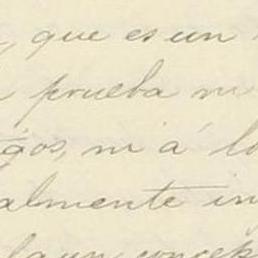 que es un
prueba ni
gos, ni á lo
almente in
concep